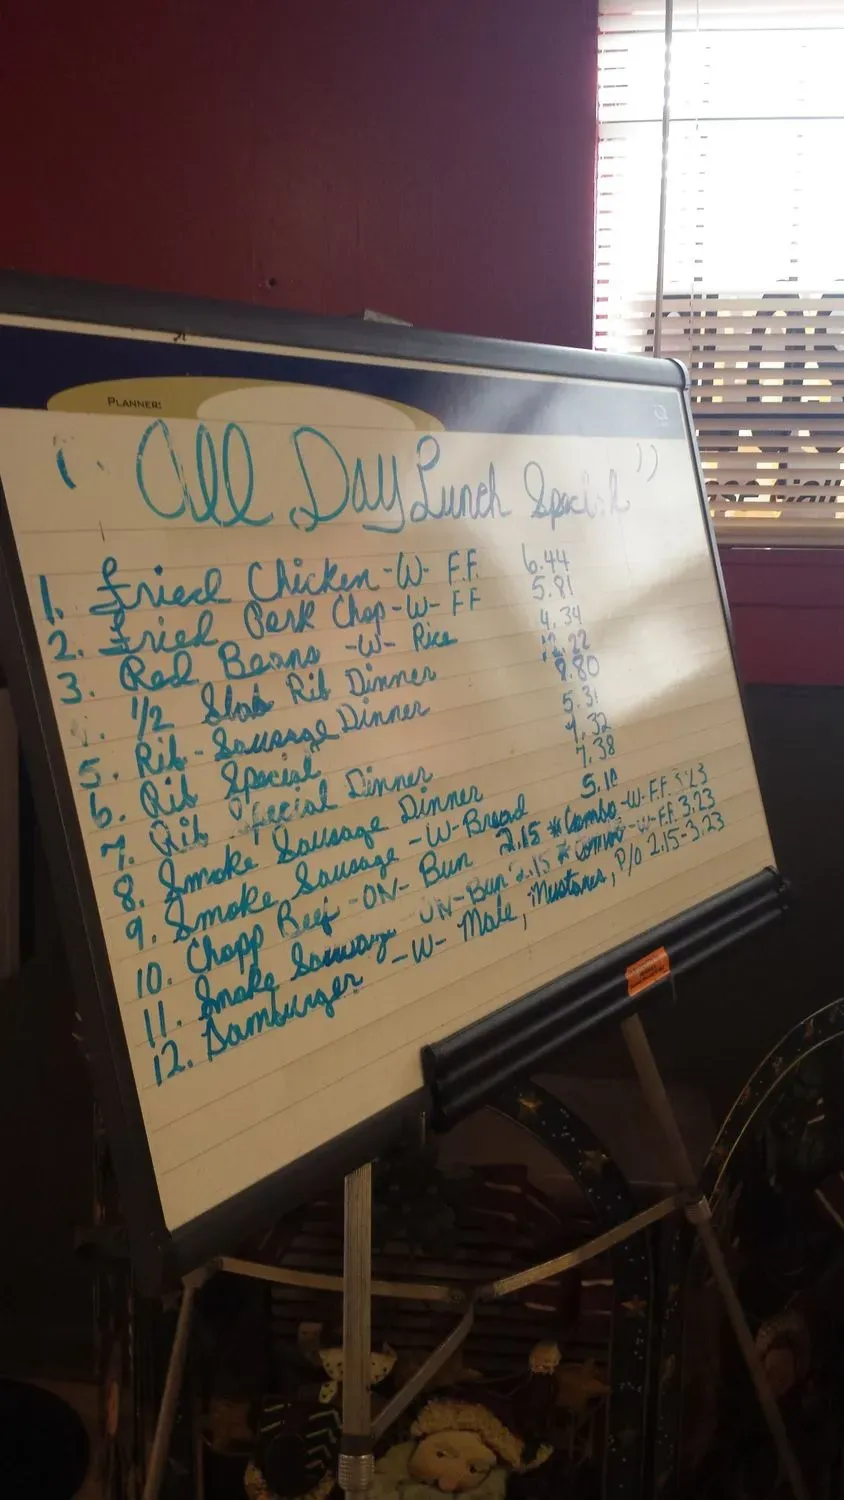 PLANNER:
"All Day Lunch Special"
1. Fried Chicken -W- F.F. 6.44
2. Fried Pork Chop -W- FF 5.81
3. Red Beans -W- Rice 4.34
4. 1/2 Slab Rib Dinner 12.22
5. Rib-Sausage Dinner 8.80
6. Rib Special 5.31
7. Rib Special Dinner 7.32
8. Smoke Sausage Dinner 7.38
9. Smoke Sausage -W- Bread 5.10
10. Chopp Beef -ON- Bun 2.15 * Combo -W- F.F. 3.23
11. Smoke Sausage ON-Bun 2.15 * Combo -W- F.F. 3.23
12. Hamburger -W- Mate, Mustard, P/O 2.15-3.23